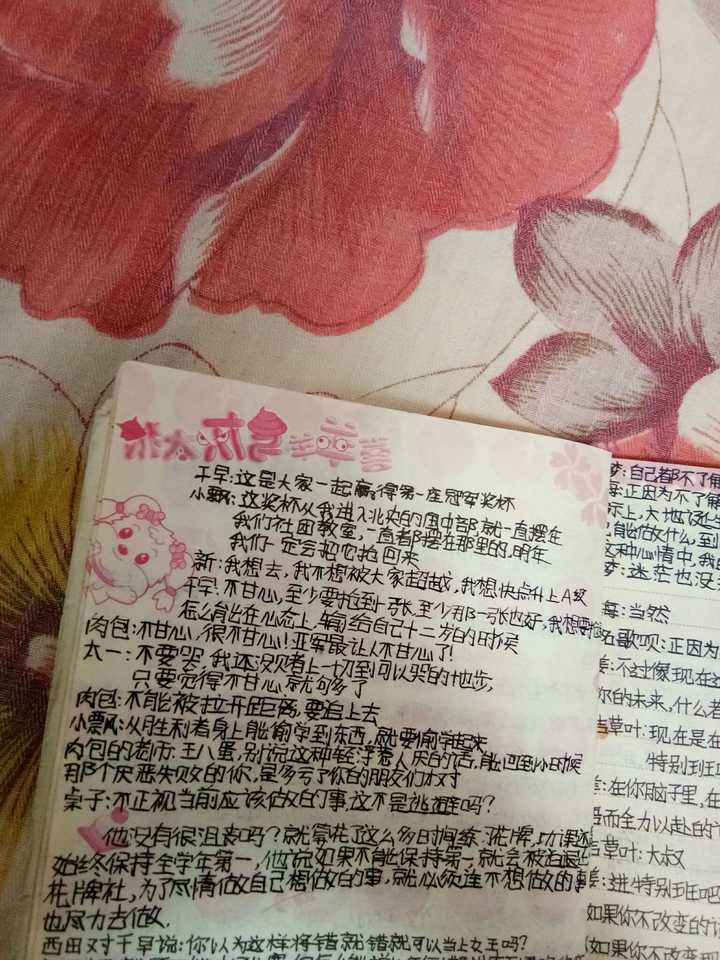 喜羊羊与灰太狼
千早:这是大家一起赢得第一座冠军奖杯
小瓢:这奖杯从我进入北央的国中部就一直摆在
我们社团教室,一直都摆在那里的,明年
我们一定会把它拍回来
新:我想去,我不想被大家超越,我想快点升上A级
千早:不甘心,至少要抢到一张,至少那一张也好,我想要抢
怎么能出在心态上,输给自己十二岁的时候
肉包:不甘心,很不甘心!亚军最让人不甘心了!
太一:不要哭,我还没赌上一切到可以哭的地步,
只要觉得不甘心就够了
肉包:不能被拉开距离,要追上去
小瓢:从胜利者身上能偷学到东西,就要偷学起来
肉包的老师:王八蛋,别说这种轻浮惹人厌的话,能回到小时候
那个厌恶失败的你,是多亏了你的朋友们对吧
桌子:不正视当前应该做的事,这不是逃避吗?
他没有很沮丧吗?就算花了这么多时间练习花牌,功课还
始终保持全学年第一,他说如果不能保持第一,就会被迫退出
花牌社,为了尽情做自己想做的事,就必须连不想做的事
也尽力去做.
西田对千早说:你以为这样将错就错就可以当上女王吗?
自己都不了解
正因为不了解
能做什么,到
这种心情中,我
迷茫也没
每:当然
歌呗:正因为
不过像现在这
你的未来,什么
草叶:现在是在
特别到
在你脑子里,在
而全力以赴的
草叶:大叔
进特别班吧
如果你不改变的话
如果你不